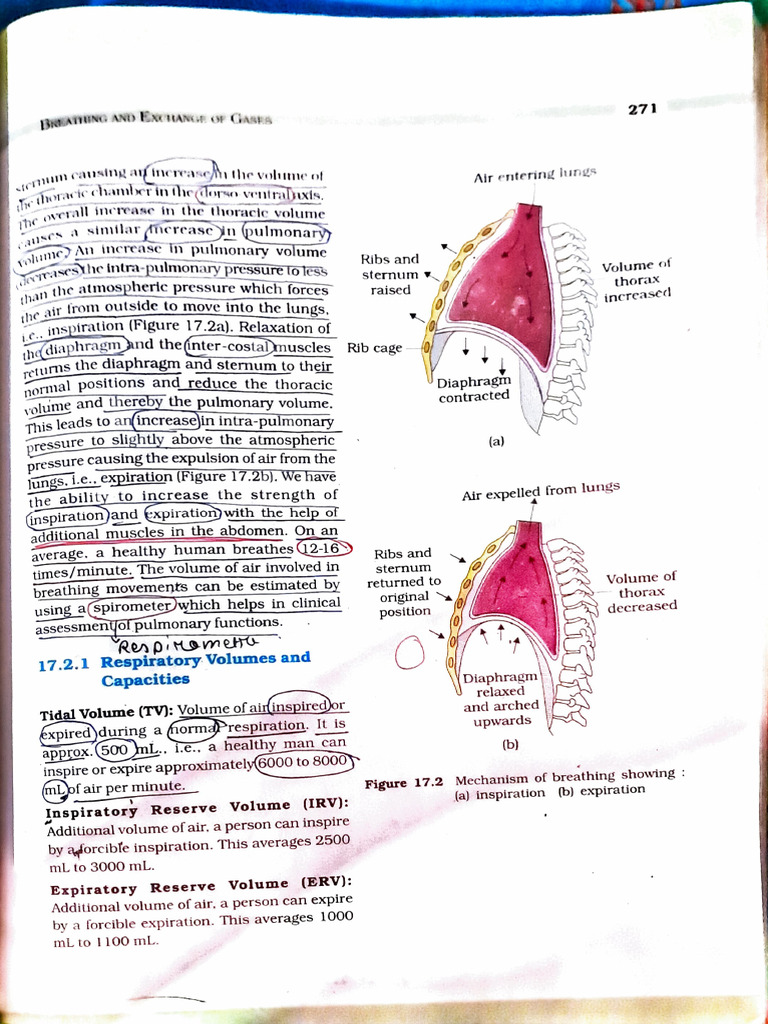 BREATHING AND EXCHANGE OF GASES
271
sternum causing an increase in the volume of
the thoracic chamber in the dorso ventral axis.
The overall increase in the thoracic volume
causes a similar increase in pulmonary
volume. An increase in pulmonary volume
decreases the intra-pulmonary pressure to less
than the atmospheric pressure which forces
the air from outside to move into the lungs,
i.e., inspiration (Figure 17.2a). Relaxation of
the diaphragm and the inter-costal muscles
returns the diaphragm and sternum to their
normal positions and reduce the thoracic
volume and thereby the pulmonary volume.
This leads to an increase in intra-pulmonary
pressure to slightly above the atmospheric
pressure causing the expulsion of air from the
lungs, i.e., expiration (Figure 17.2b). We have
the ability to increase the strength of
inspiration and expiration with the help of
additional muscles in the abdomen. On an
average, a healthy human breathes 12-16
times/minute. The volume of air involved in
breathing movements can be estimated by
using a spirometer which helps in clinical
assessment of pulmonary functions.
17.2.1 Respiratory Volumes and
Capacities
Tidal Volume (TV): Volume of air inspired or
expired during a normal respiration. It is
approx. 500 mL., i.e., a healthy man can
inspire or expire approximately 6000 to 8000
mL of air per minute.
Inspiratory Reserve Volume (IRV):
Additional volume of air, a person can inspire
by a forcible inspiration. This averages 2500
mL to 3000 mL.
Expiratory Reserve Volume (ERV):
Additional volume of air, a person can expire
by a forcible expiration. This averages 1000
mL to 1100 mL.
Air entering lungs
Ribs and
sternum
raised
Volume of
thorax
increased
Rib cage
Diaphragm
contracted
(a)
Air expelled from lungs
Ribs and
sternum
returned to
original
position
Volume of
thorax
decreased
Diaphragm
relaxed
and arched
upwards
(b)
Figure 17.2 Mechanism of breathing showing :
(a) inspiration (b) expiration